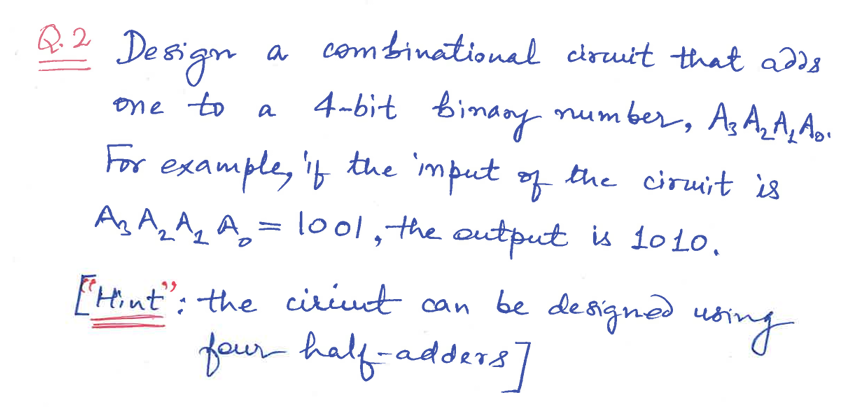 Q.2 Design a combinational circuit that adds
one to a 4-bit binary number, A₃A₂A₁A₀.
For example, if the input of the circuit is
A₃A₂A₁A₀ = 1001, the output is 1010.
["Hint": the circiut can be designed using
four half-adders]